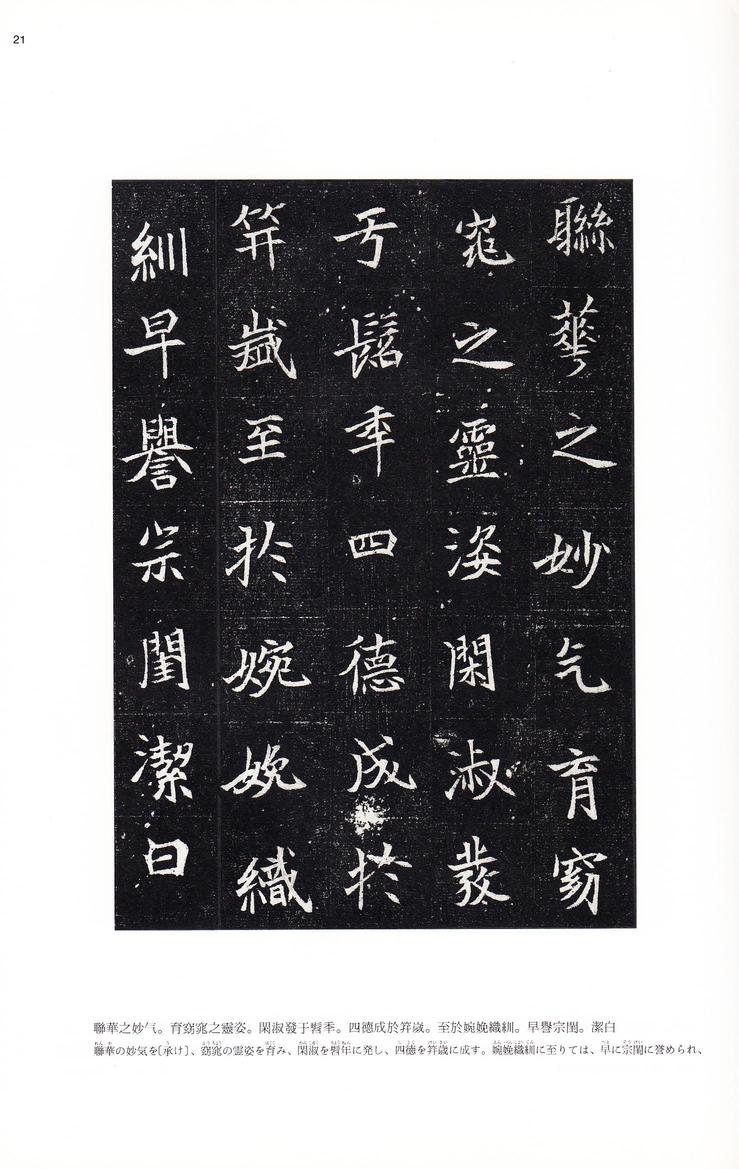 21
聯華之妙气育窈
窕之靈姿閑淑發
于髫秊四德成於
笄歲至於婉娩織
紃早譽宗閨潔白
聯華之妙气。育窈窕之靈姿。閑淑發于髫秊。四德成於笄歲。至於婉娩織紃。早譽宗閨。潔白
聯華の妙気を〔承け〕、窈窕の霊姿を育み、閑淑を髫年に発し、四徳を笄歳に成す。婉娩織紃に至りては、早に宗閨に誉められ、